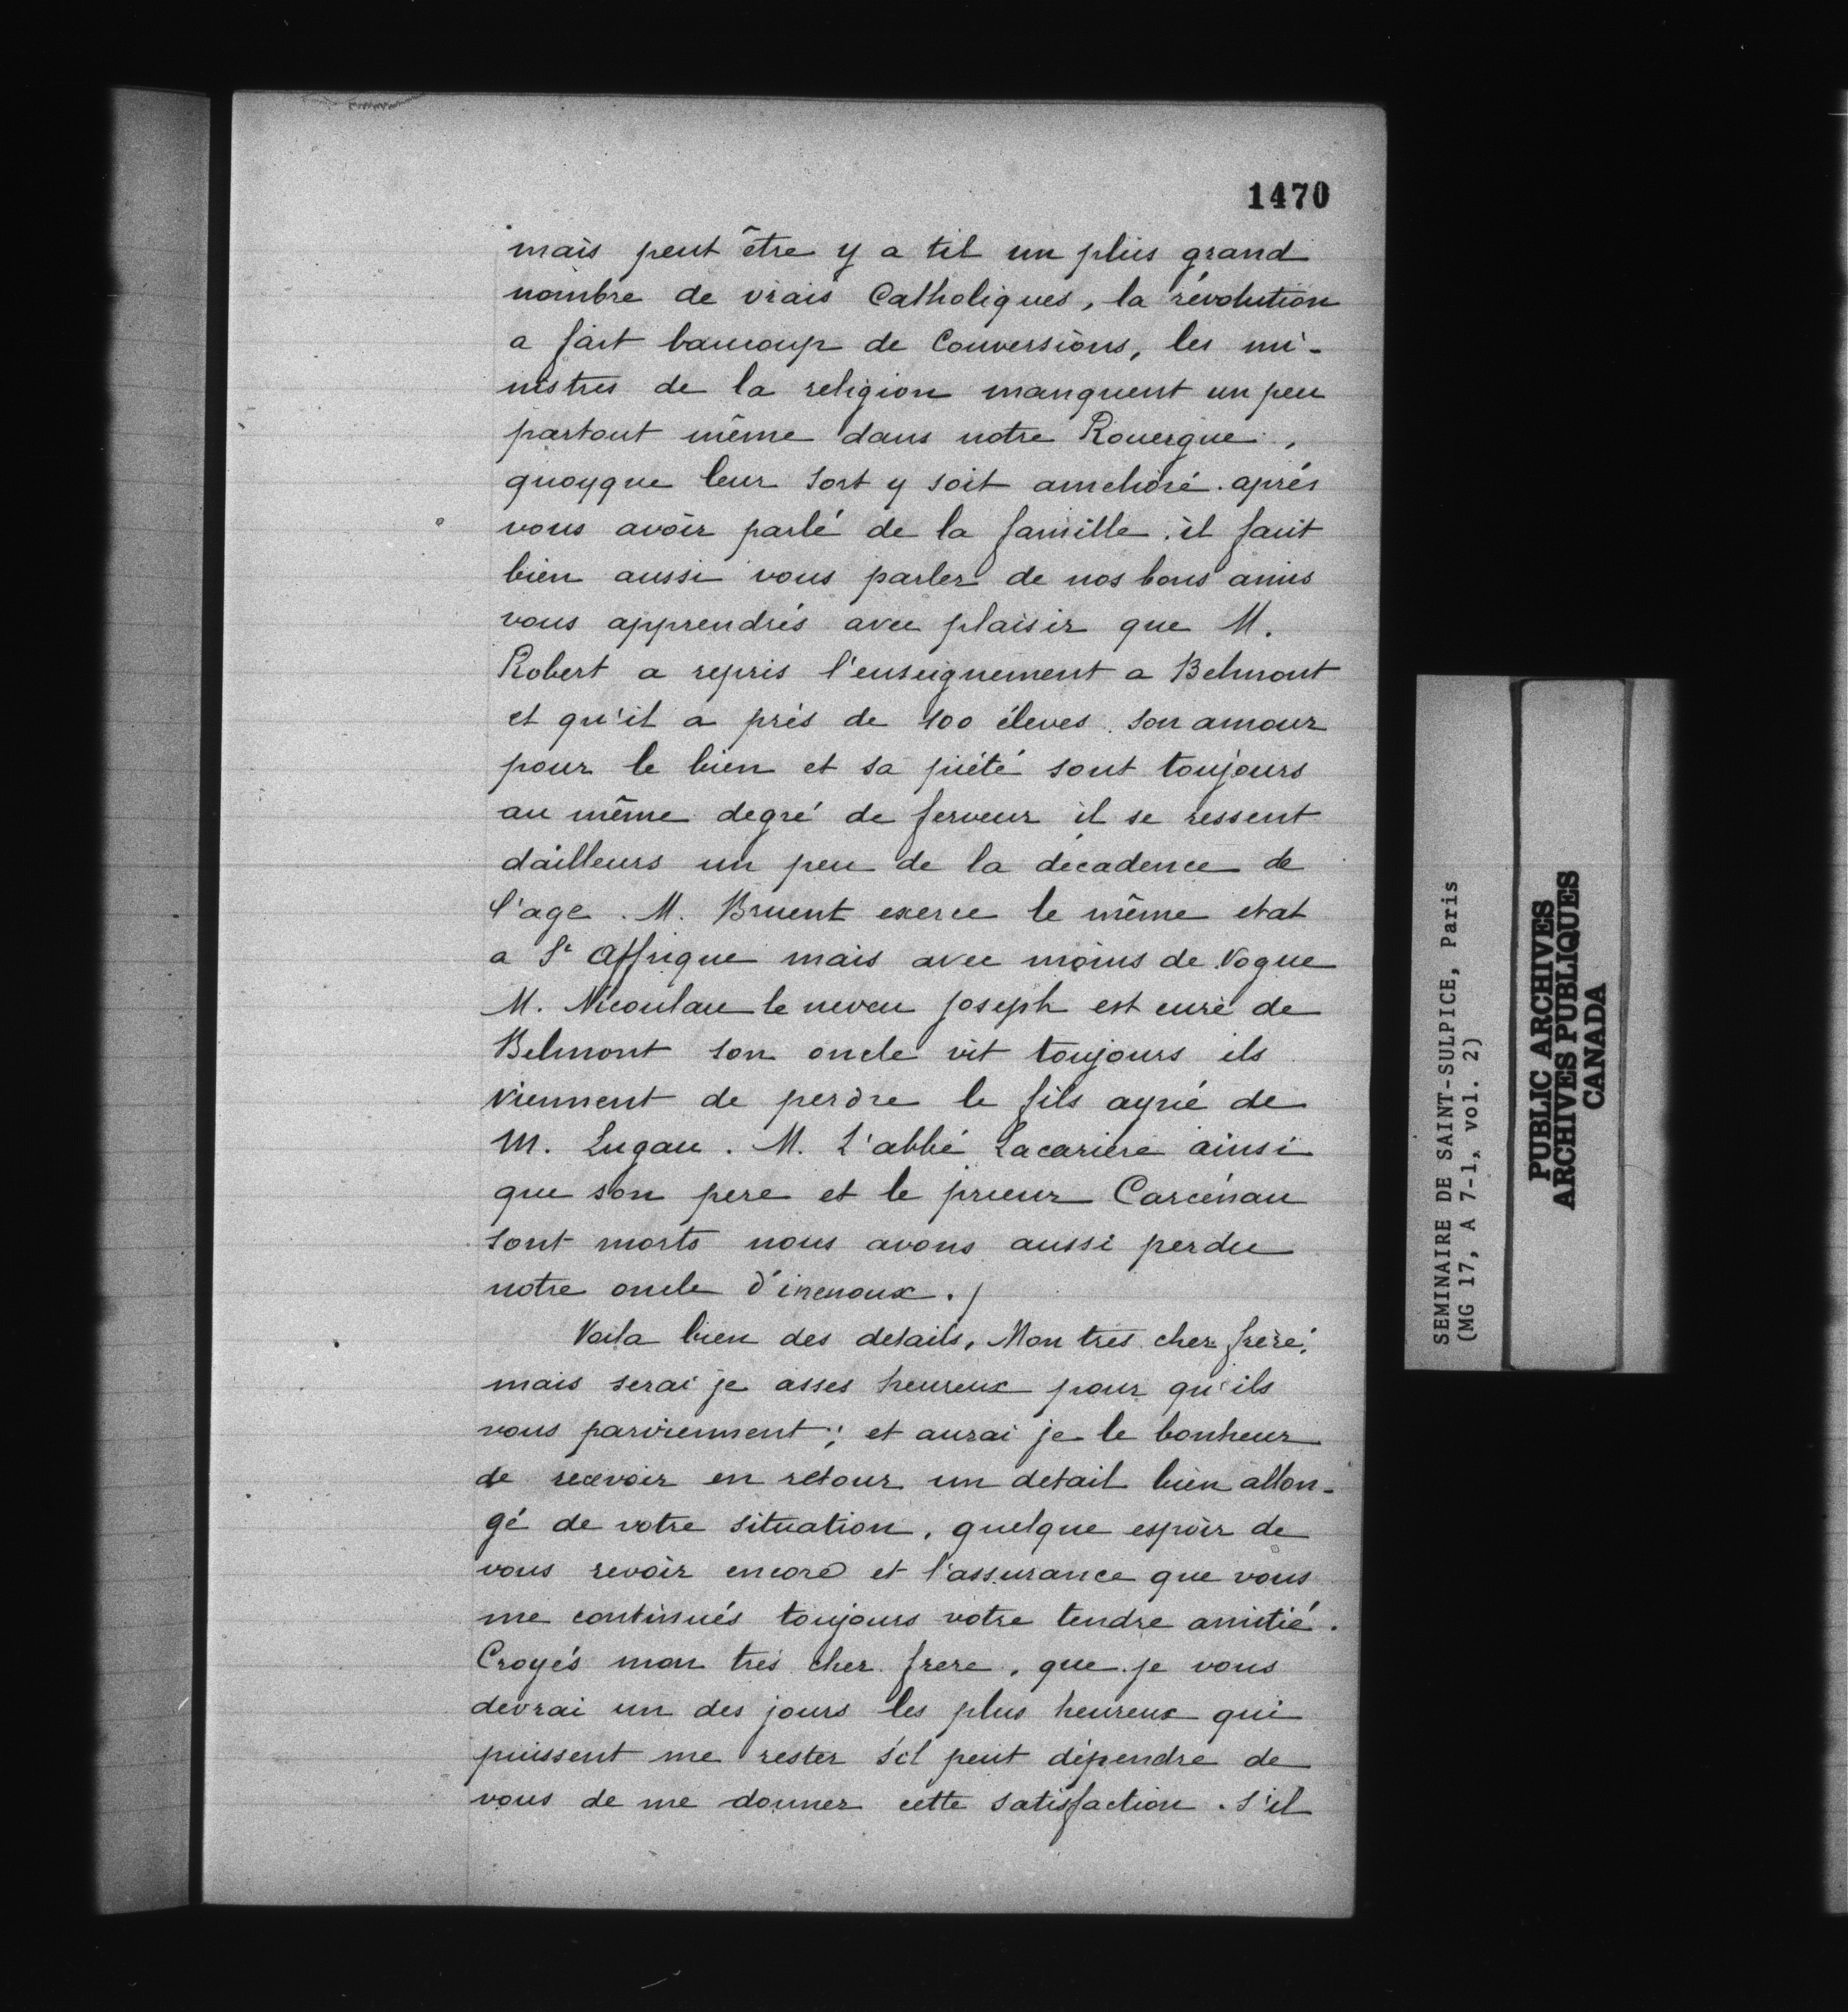 1470
mais peut être y a til un plus grand
nombre de vrais Catholiques, la révolution
a fait baucoup de Conversions, les mi-
nistres de la religion manquent un peu
partout même dans notre Rouergue,
quoyque leur sort y soit amelioré. après
vous avoir parlé de la famille. il faut
bien aussi vous parler de nos bons amis
vous apprendrés avec plaisir que M.
Robert a repris l'enseignement a Belmont
et qu'il a près de 100 éleves. son amour
pour le bien et sa piété sont toujours
au même degré de ferveur il se ressent
dailleurs un peu de la décadence de
l'age. M. Bruent exerce le même etat
a St Affrique mais avec moins de Vogue
M. Nicoulau le neveu joseph est curé de
Belmont son oncle vit toujours ils
viennent de perdre le fils ayné de
M. Lugau. M. L'abbé Lacariere ainsi
que son pere et le prieur Carcénau
sont morts nous avons aussi perdu
notre oncle
Voila bien des details, Mon tres cher frère,
mais serai je asses heureux pour qu'ils
vous parviennent; et aurai je le bonheur
de recevoir en retour un detail bien allon-
gé de votre situation, quelque espoir de
vous revoir encore et l'assurance que vous
me continués toujours votre tendre amitié.
Croyés mon très cher frere, que je vous
devrai un des jours les plus heureux qui
puissent me rester s'il peut dépendre de
vous de me donner cette satisfaction. S'il
SEMINAIRE DE SAINT-SULPICE, Paris
(MG 17, A 7-1, vol. 2)
PUBLIC ARCHIVES
ARCHIVES PUBLIQUES
CANADA